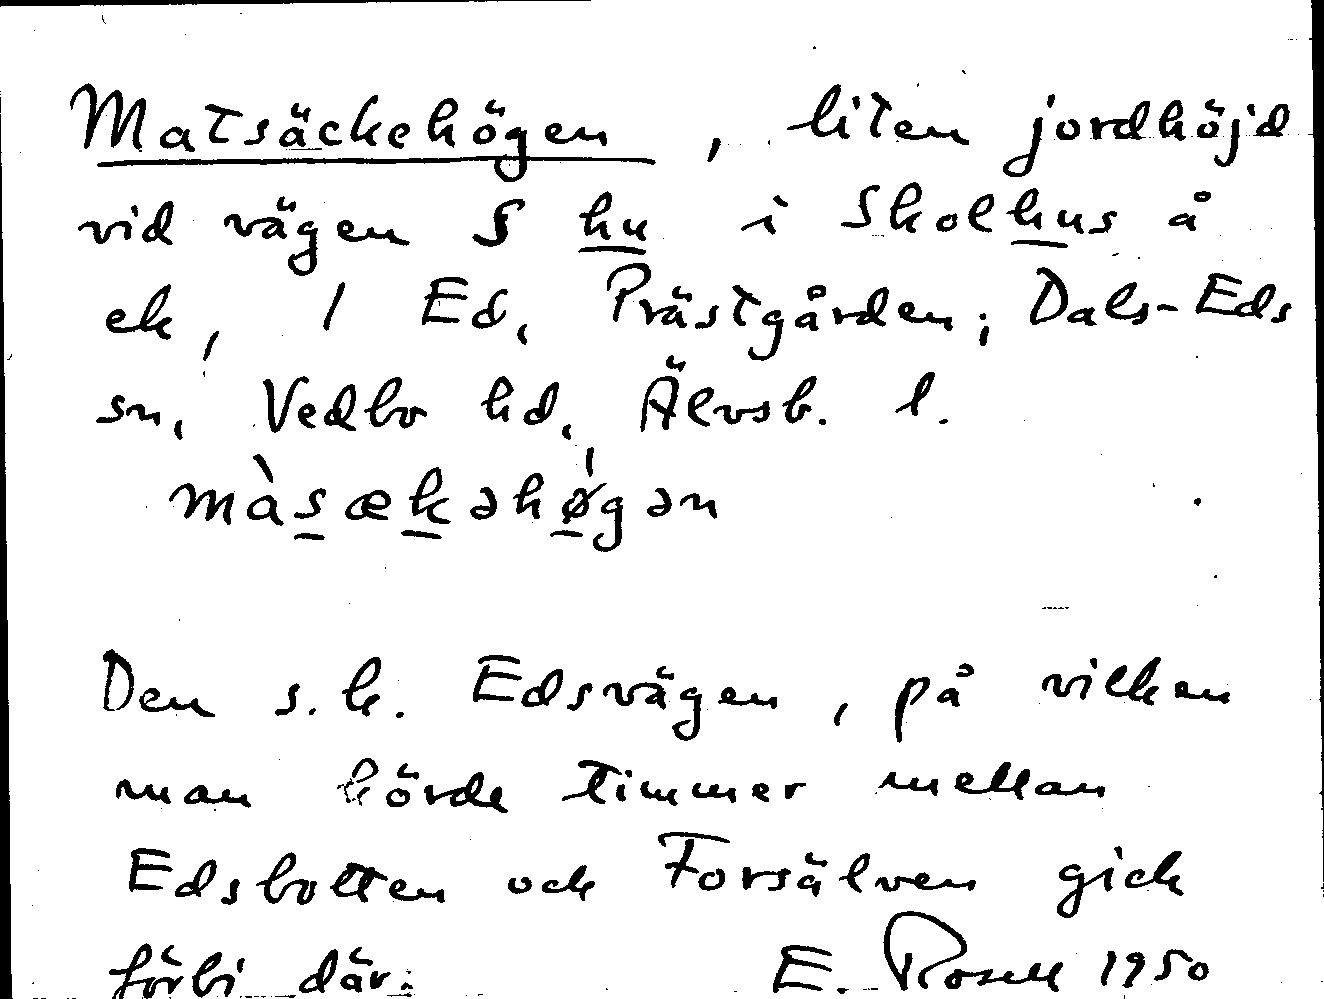 Matsäckehögen, liten jordhöjd
vid vägen S hu i Skolhus å
ek, 1 Ed, Prästgården; Dals-Eds
sn, Vedbo hd, Älvsb. l.
màsækəhø̍gən
Den s.k. Edsvägen, på vilken
man körde timmer mellan
Edsbotten och Forsälven gick
förbi där.     E. Rosell 1950